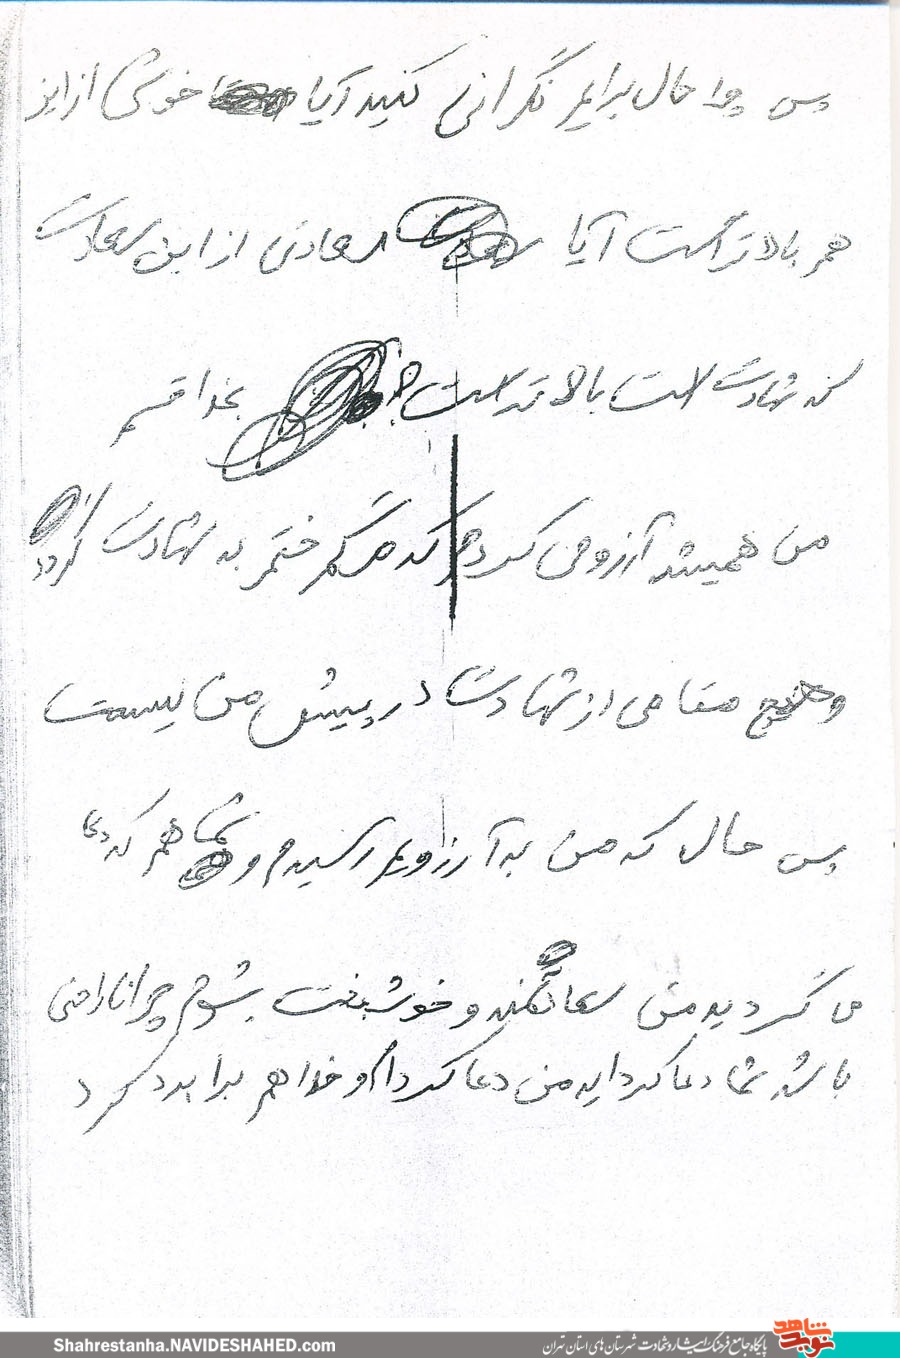 پس چرا حال برایم نگرانی کنید آیا خوشی از این
هم بالاتر است آیا سعادتی از این سعادت
که شهادت است بالاتر است؟ بخدا قسم
من همیشه آرزو می کردم که مرگم ختم به شهادت گردد
و هیچ مقامی از شهادت در پیش من نیست
پس حال که من به آرزویم رسیدم و شما هم که دعا
می کردید من سعادتمند و خوشبخت بشوم چرا ناراحتی
باشد شما دعا کرداید من دعا کردم و خدا هم برآورد کرد
Shahrestanha.NAVIDESHAHED.com
پایگاه جامع فرهنگ ایثار و شهادت شهرستان های استان تهران
نوید شاهد